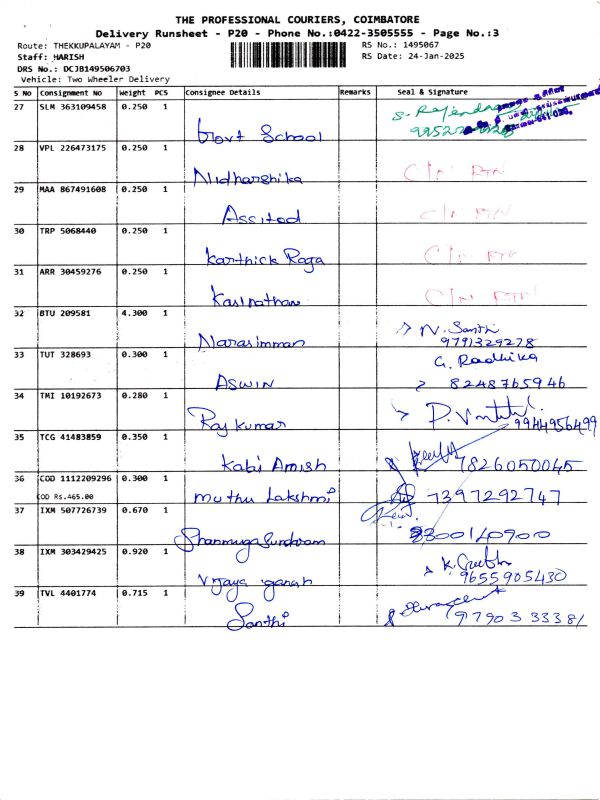 THE PROFESSIONAL COURIERS, COIMBATORE
Delivery Runsheet - P20 - Phone No.:0422-3505555 - Page No.:3
Route: THEKKUPALAYAM - P20 RS No.: 1495067
Staff: HARISH RS Date: 24-Jan-2025
DRS No.: DCJB149506703
Vehicle: Two Wheeler Delivery
S No Consignment No Weight PCS Consignee Details Remarks Seal & Signature
27 SLM 363109458 0.250 1 S. Rajendra
Govt School
28 VPL 226473175 0.250 1
Nidharshika C/N RTN
29 MAA 867491608 0.250 1
Assitod C/N RTN
30 TRP 5068440 0.250 1
Karthick Raga C/N RTN
31 ARR 30459276 0.250 1
Kasinathan C/N RTN
32 BTU 209581 4.300 1 N. Santhi
Narasimman 9791329278
33 TUT 328693 0.300 1 G. Radhika
ASWIN 8248765946
34 TMI 10192673 0.280 1
Raj kumar 9944956499
35 TCG 41483859 0.350 1
Kabi Amish 7826050045
36 COD 1112209296 0.300 1
COD Rs.465.00 Muthu Lakshmi 7397292747
37 IXM 507726739 0.670 1
Shanmuga Sundram 8300140900
38 IXM 303429425 0.920 1
Vijaya ganah 9655905430
39 TVL 4401774 0.715 1
Santhi 9790333381